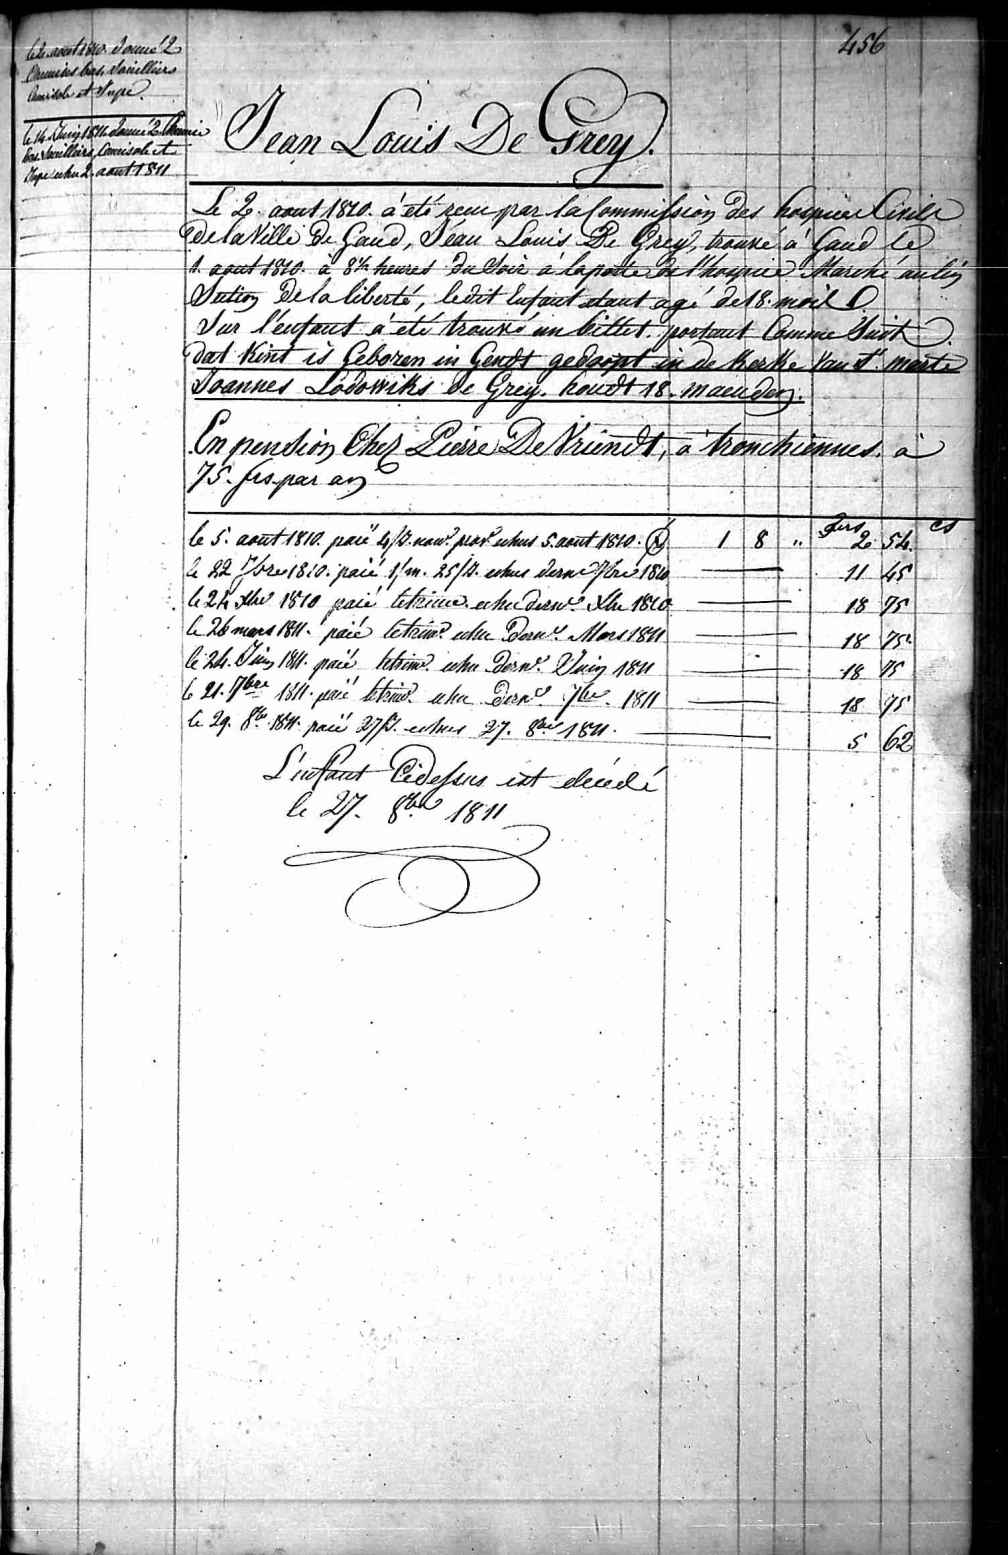 456
le 2. aout 1810. donné 2
Chemises bas, Souilliers
Camisole et Jupe.
le 14. Juin 1811. donné 2 Chemise
bas, Souilliers, Camisole et
Jupe echu 2. aout 1811
Jean Louis De Grey.
Le 2. aout 1810. à été recu par la Commission des hospices Civils
de la Ville de Gand, Jean Louis De Grey, trouvé à Gand le
1. aout 1810. à 8½ heures du Soir à la porte de l'hospice Marché au lin
Section de la liberté, ledit Enfant etant agé de 18. mois
Sur l'enfant à été trouvé un billet portant Comme Suit
dat kint is Geboren in Gendt gedoopt in de kerke van St. marte
Joannes Lodowiks de Grey. houdt 18. maenden.
En pension Chez Pierre De Vriendt, à tronchiennes. à
75. frs. par an
frs cs
le 5. aout 1810. paié 4/s. nour. prov. echus 5. aout 1810. 1 8 " 2 54.
le 22 7bre 1810. paié 1/m. 25/s. echus dern. 7bre 1810 11 45
le 24 Xbre 1810 paié letrime. echu dern. Xbre 1810 18 75
le 26 mars 1811. paié letrim. echu Dern. Mars 1811 18 75
le 24. Juin 1811. paié letrim. echu Dern. Juin 1811 18 75
le 21. 7bre 1811. paié letrim. echu Dern. 7bre. 1811 18 75
le 29. 8bre. 1811. paié 27/s. echus 27. 8bre 1811. 5 62
L'enfant Cidessus est décédé
le 27. 8bre 1811